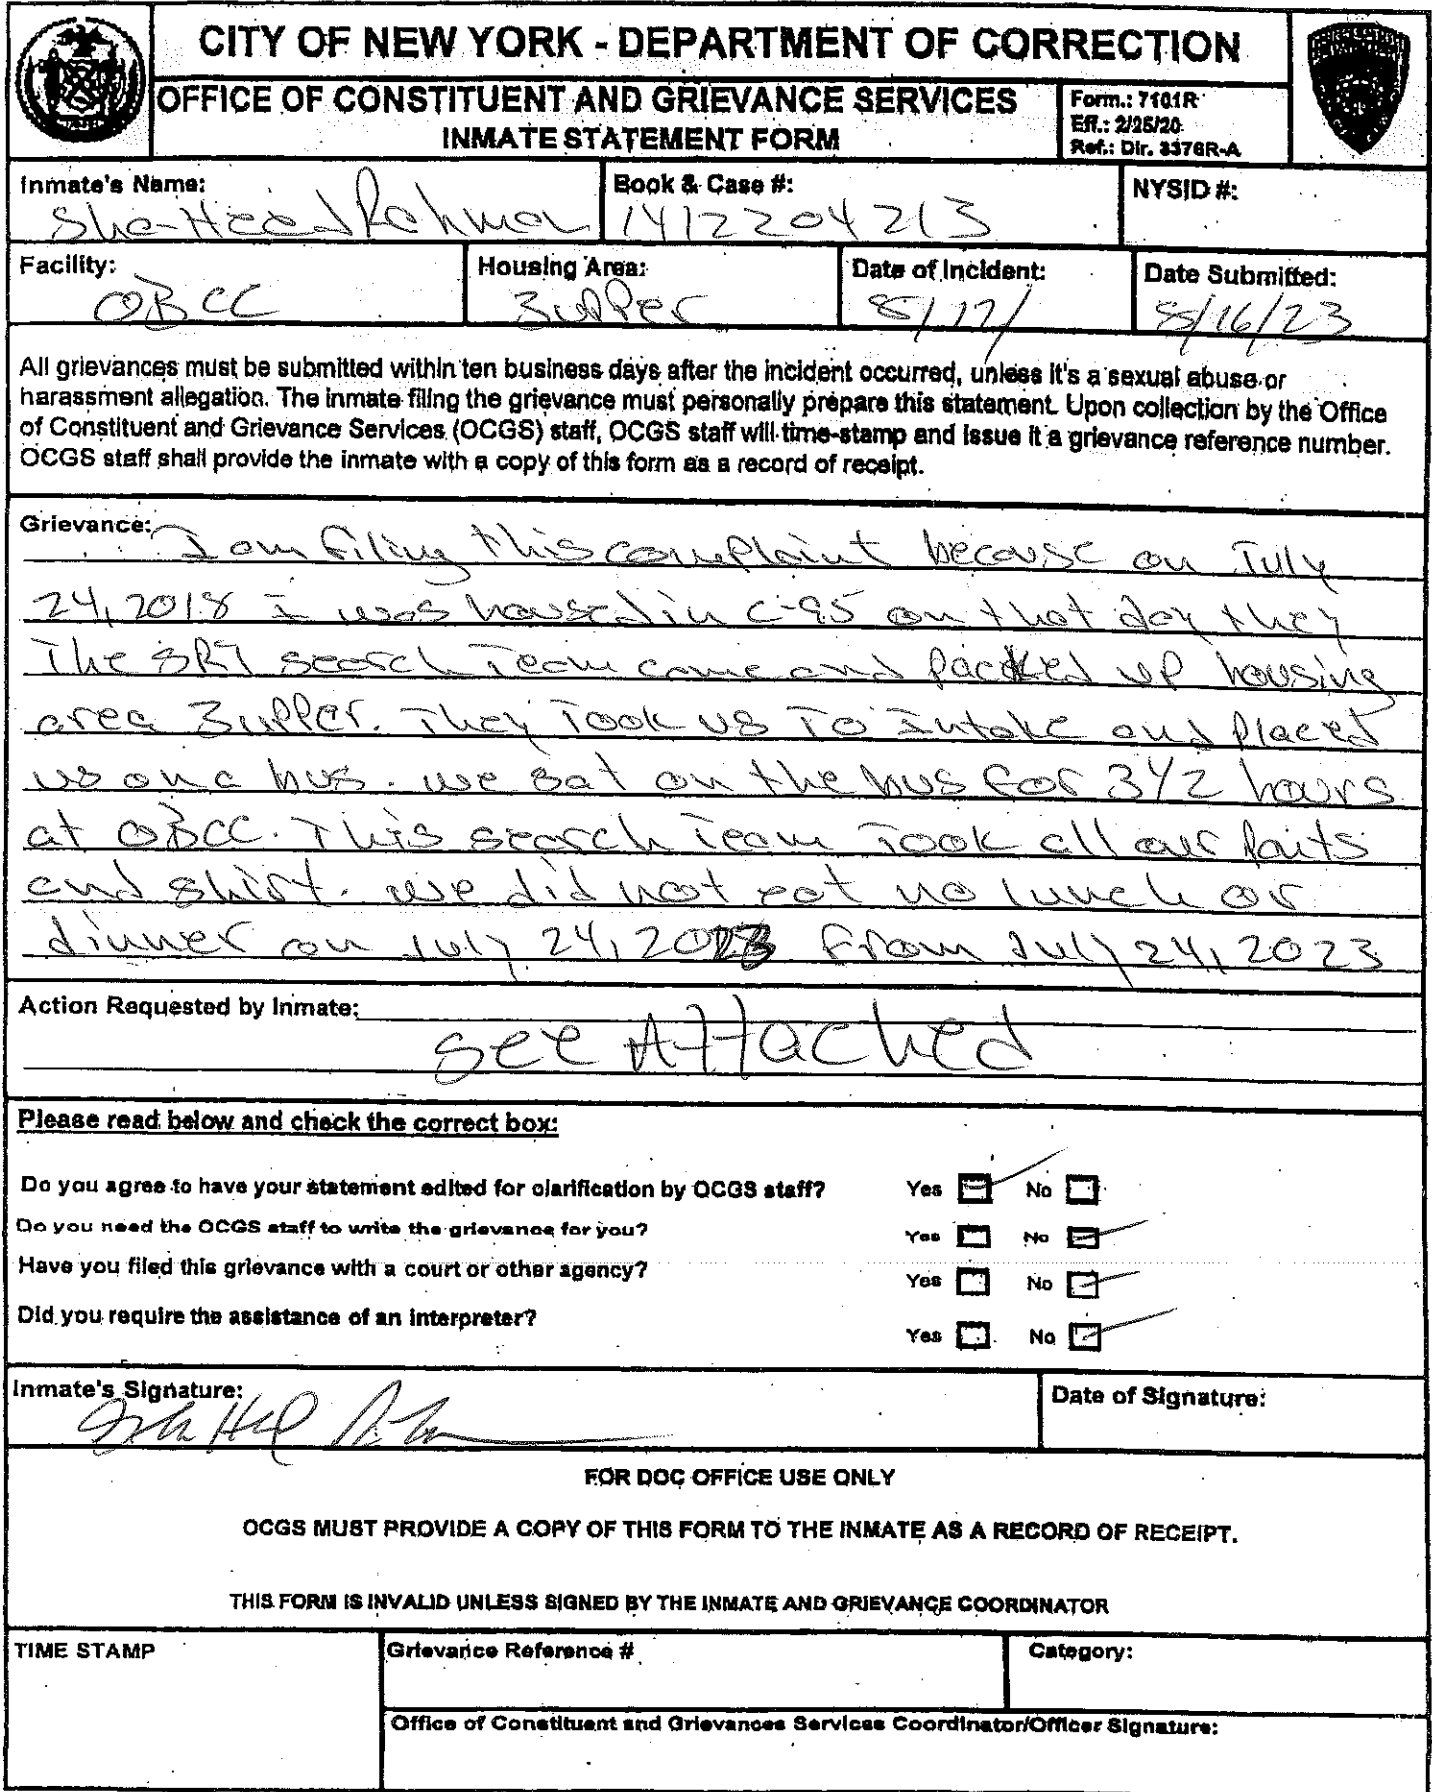 CITY OF NEW YORK - DEPARTMENT OF CORRECTION
OFFICE OF CONSTITUENT AND GRIEVANCE SERVICES
INMATE STATEMENT FORM
Form.: 7101R
Eff.: 2/25/20
Ref.: Dir. 3376R-A
Inmate's Name:
Sha-Heed Rahman
Book & Case #:
1412204213
NYSID #:
Facility:
OBCC
Housing Area:
3upper
Date of Incident:
8/17/
Date Submitted:
8/16/23
All grievances must be submitted within ten business days after the incident occurred, unless it's a sexual abuse or
harassment allegation. The inmate filing the grievance must personally prepare this statement. Upon collection by the Office
of Constituent and Grievance Services (OCGS) staff, OCGS staff will time-stamp and issue it a grievance reference number.
OCGS staff shall provide the inmate with a copy of this form as a record of receipt.
Grievance:
I am filing this complaint because on July
24, 2018 I was housed in C-95 on that day they
The SRT search Team came and packed up housing
area 3upper. They Took us To Intake and placed
us on a bus. we sat on the bus for 3 1/2 hours
at OBCC. This search Team Took all our paits
and shirt. we did not eat no lunch or
dinner on July 24, 2023 From July 24, 2023
Action Requested by Inmate:
see Attached
Please read below and check the correct box:
Do you agree to have your statement edited for clarification by OCGS staff? Yes No
Do you need the OCGS staff to write the grievance for you? Yes No
Have you filed this grievance with a court or other agency? Yes No
Did you require the assistance of an interpreter? Yes No
Inmate's Signature:
Date of Signature:
FOR DOC OFFICE USE ONLY
OCGS MUST PROVIDE A COPY OF THIS FORM TO THE INMATE AS A RECORD OF RECEIPT.
THIS FORM IS INVALID UNLESS SIGNED BY THE INMATE AND GRIEVANCE COORDINATOR
TIME STAMP
Grievance Reference #
Category:
Office of Constituent and Grievances Services Coordinator/Officer Signature: